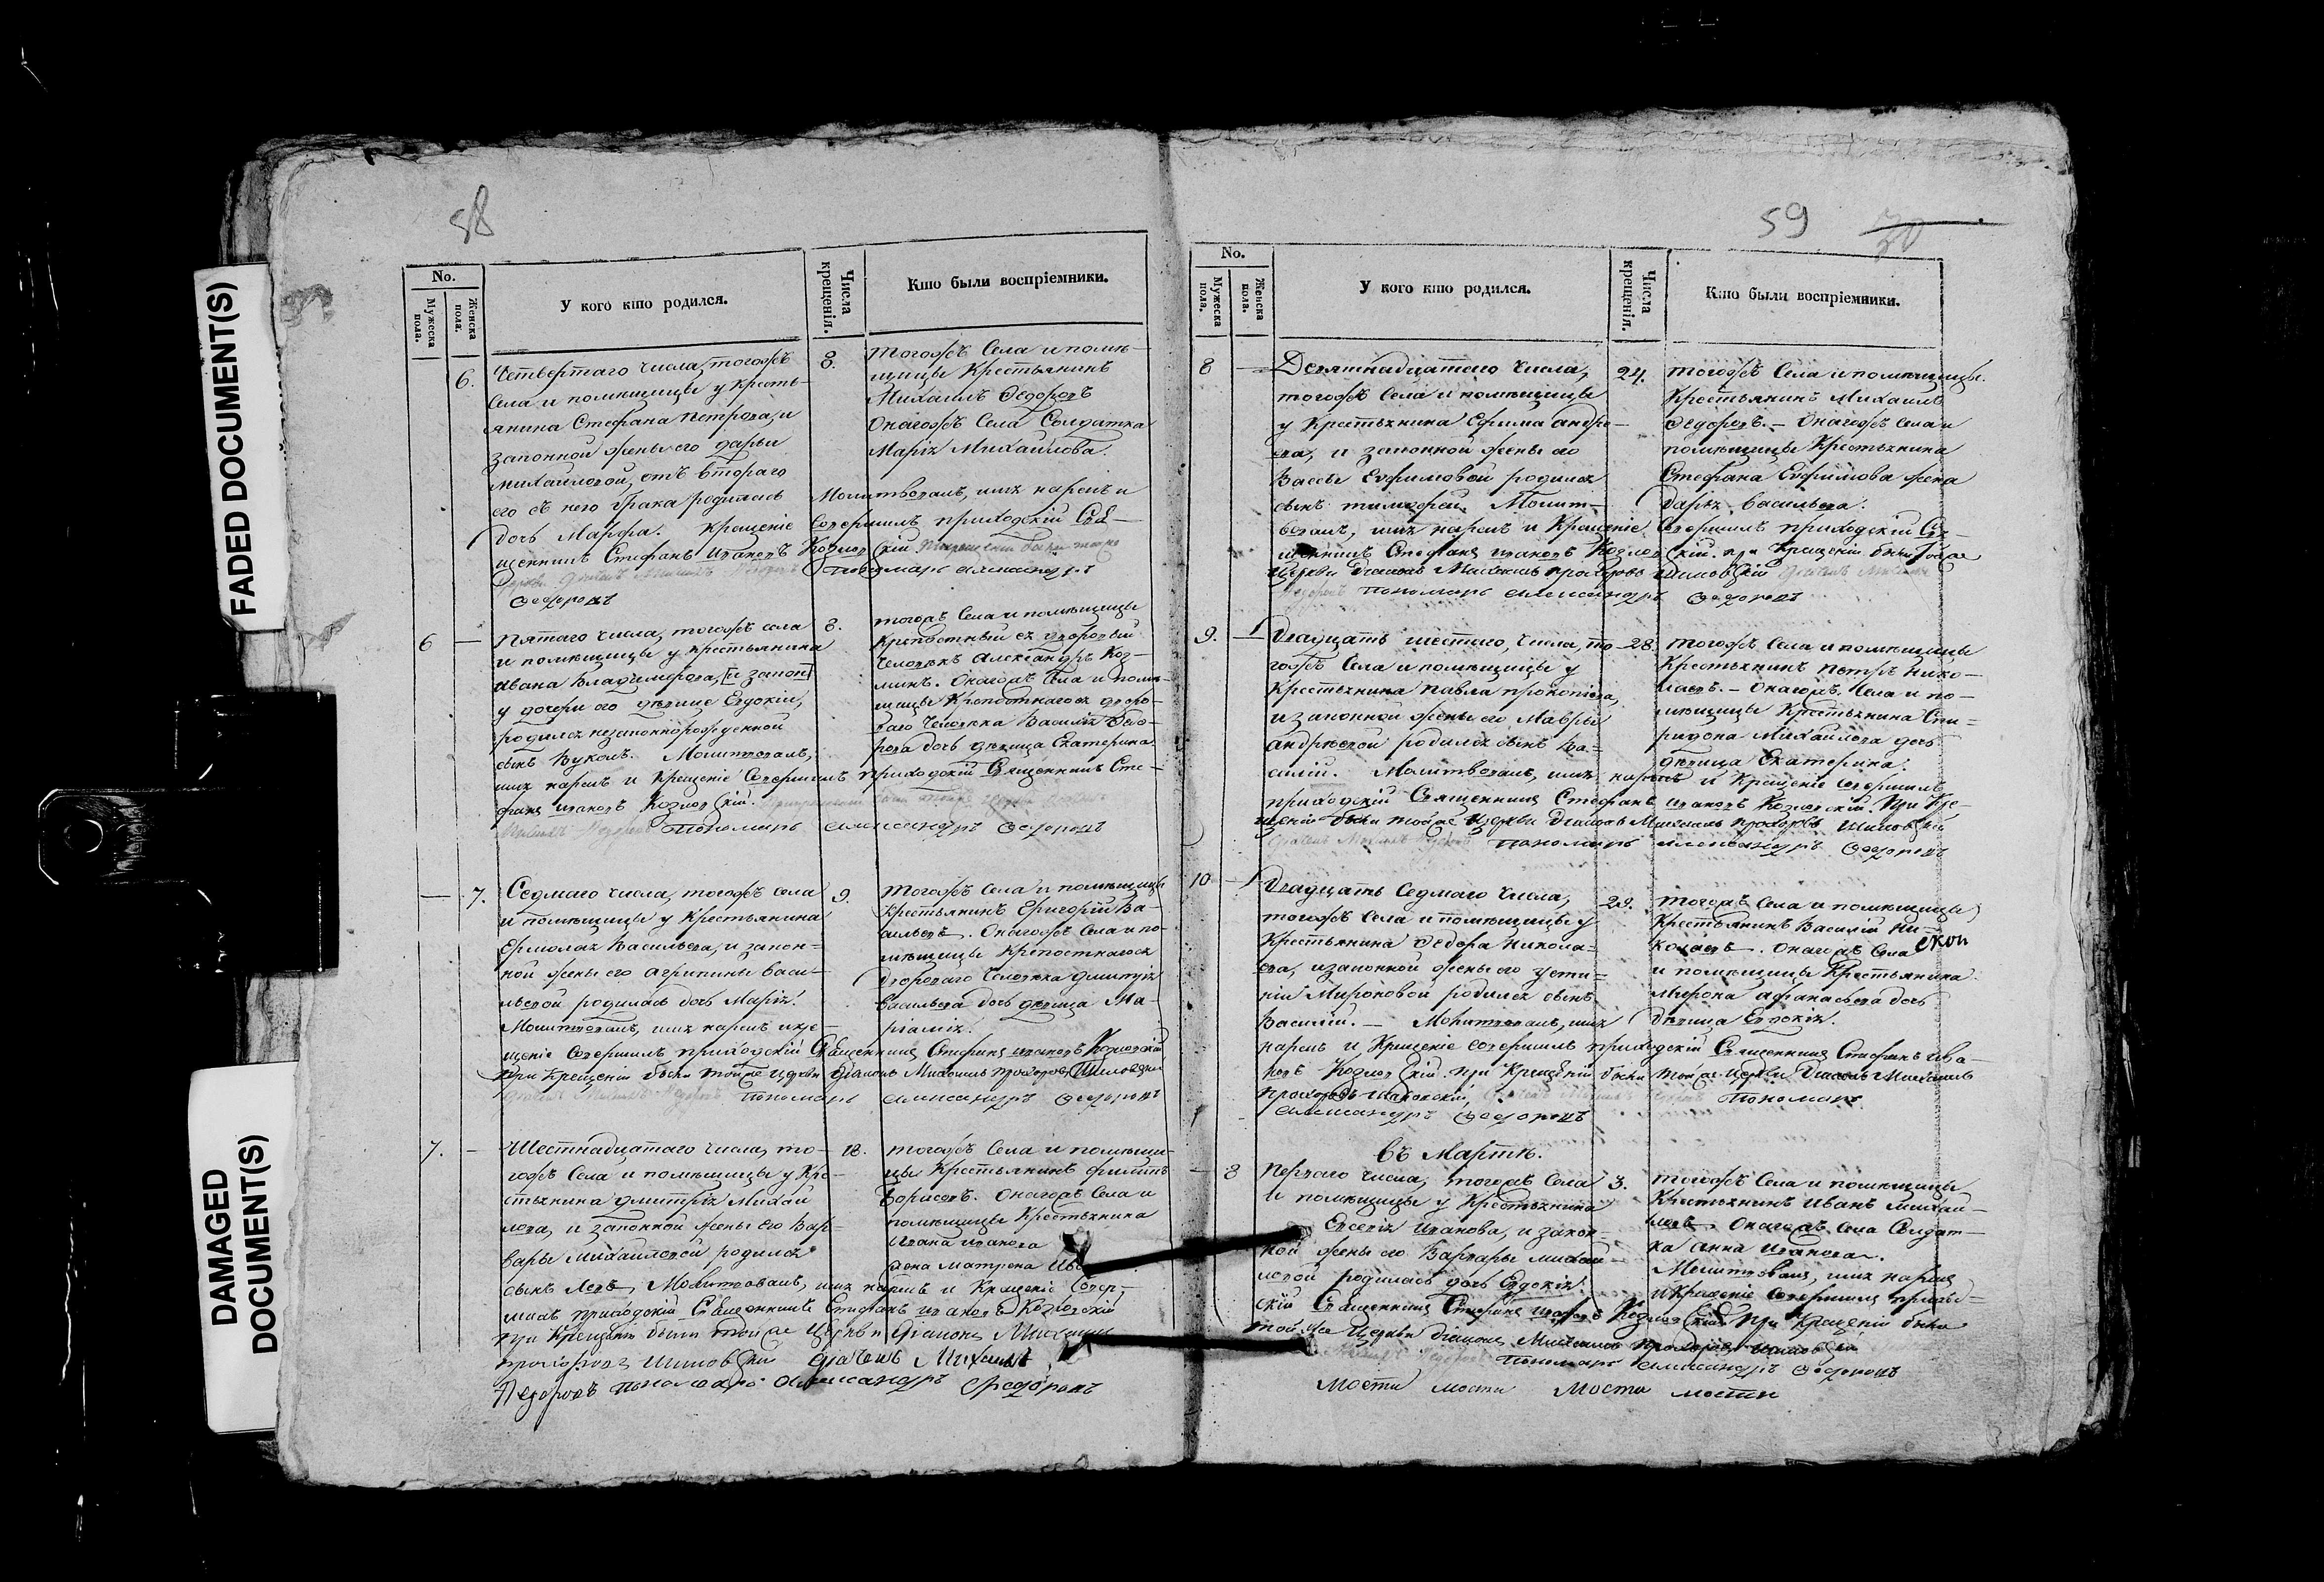 FADED DOCUMENT(S)
DAMAGED
DOCUMENT(S)
58
No.
Мужеска пола.
Женска пола.
У кого кто родился.
Числа крещенія.
Кто были воспріемники.
6.
Четвертаго числа, тогожъ
села и помѣщицы у кресть-
янина Стефана Петрова, и
законной жены его Дарьи
Михайловой, отъ втораго
его съ нею брака родилась
дочь Марфа. Крещеніе
8.
тогожъ Села и помѣ-
щицы Крестьянинъ
Михаилъ Ѳедоровъ
Онагожъ Села Солдатка
Марія Михайлова.
Молитвовалъ, имя нарекъ и
Совершилъ приходскій Свя-
щенникъ Стефанъ Ивановъ Козловскій
Пономарь Александръ
Ѳедоровъ
6 —
Пятаго числа, тогожъ села
и помѣщицы у крестьянина
Ивана Владимірова, [и закон]
у дочери его дѣвицы Евдокіи,
родился незаконнорожденной
сынъ Вуколъ. Молитвовалъ,
имя нарекъ и Крещеніе Совершилъ приходскій Священникъ Сте-
фанъ Ивановъ Козловскій.
8.
тогожъ Села и помѣщицы
крѣпостный ея дворовый
человѣкъ Александръ Коз-
минъ. Онагожъ Села и помѣ-
щицы Крѣпостнаго ея дворо-
ваго человѣка Василья Ѳедо-
рова дочь дѣвица Екатерина.
Пономарь Александръ Ѳедоровъ
— 7.
Седмаго числа, тогожъ села
и помѣщицы у Крестьянина
Ермолая Васильева, и закон-
ной жены его Агрипины Васи-
льевой родилась дочь Марія.
Молитвовалъ, имя нарекъ и кре-
щеніе Совершилъ приходскій Священникъ Стефанъ Ивановъ Козловскій
При Крещеніи были тойже церкви Діаконъ Михаилъ Прохоровъ Шиловскій
9.
тогожъ Села и помѣщицы
Крестьянинъ Григорій Ва-
сильевъ. Онагожъ Села и по-
мѣщицы Крѣпостнаго ея
Двороваго человѣка Дмитрія
Васильева дочь дѣвица Ма-
ріамія.
Пономарь Александръ Ѳедоровъ
7. —
Шестнадцатаго числа, то-
гожъ Села и помѣщицы у Кре-
стьянина Дмитрія Михай
лова, и законной жены его Вар-
вары Михайловой родился
сынъ Левъ, Молитвовалъ, имя нарекъ и Крещеніе Совер-
шилъ приходскій Священникъ Стефанъ Ивановъ Козловскій
при Крещеніи были тойже Церкви Діаконъ Михаилъ
Прохоровъ Шиловскій дьячекъ Михаилъ
Ѳедоровъ пономарь Александръ Ѳедоровъ
18.
тогожъ Села и помѣщи-
цы Крестьянинъ Филипъ
Борисовъ. Онагожъ Села и
помѣщицы Крестьянина
Ивана Иванова
жена Матрена
59
No.
Мужеска пола.
Женска пола.
У кого кто родился.
Числа крещенія.
Кто были воспріемники.
8 —
Девятнадцатаго Числа,
тогожъ Села и помѣщицы
у Крестьянина Ефима Андре-
ева, и законной жены его
Вассы Ефимовой родился
сынъ Тимофей. Молит-
вовалъ, имя нарекъ и Крещеніе Совершилъ приходскій Свя-
щенникъ Стефанъ Ивановъ Козловскій. при Крещеніи были тойже
Церкви Діаконъ Михаилъ Прохоровъ Шиловскій
Пономарь Александръ Ѳедоровъ
24.
тогожъ Села и помѣщицы.
Крестьянинъ Михаилъ
Ѳедоровъ. — Онагожъ Села и
помѣщицы Крестьянина
Стефана Ефимова жена
Дарія Васильева.
9. —
Двадцать шестаго, числа, то-
гожъ Села и помѣщицы у
Крестьянина Павла Прокопіева,
и законной жены его Мавры
Андрѣевой родился сынъ Ва-
силій. Молитвовалъ, имя нарекъ и Крещеніе Совершилъ
приходскій Священникъ Стефанъ Ивановъ Козловскій. При Кре-
щеніи были тойже Церкви Діаконъ Михаилъ Прохоровъ Шиловскій
Пономарь Александръ Ѳедоровъ
28.
тогожъ Села и помѣщицы
Крестьянинъ Петръ Нико-
лаевъ. — Онагожъ Села и по-
мѣщицы Крестьянина Спи-
ридона Михайлова дочь
дѣвица Екатерина.
10 —
Двадцать Седмаго Числа,
тогожъ Села и помѣщицы у
Крестьянина Ѳедора Никола-
ева, и законной жены его Усти-
ніи Мироновой родился сынъ
Василій. — Молитвовалъ, имя
нарекъ и Крещеніе совершилъ приходскій Священникъ Стефанъ Ива-
новъ Козловскій. при Крещеніи были тойже Церкви Діаконъ Михаилъ
Прохоровъ Шиловскій, Пономарь
Александръ Ѳедоровъ
29.
тогожъ Села и помѣщицы
Крестьянинъ Василій Ни-
колаевъ. Онагожъ Села
и помѣщицы Крестьянина
Мирона Афанасьева дочь
дѣвица Евдокія.
Въ Мартѣ.
— 8
Перваго числа, тогожъ Села
и помѣщицы у Крестьянина
Евсевія Иванова, и закон-
ной жены его Варвары Михай-
ловой родилась дочь Евдокія.
3.
тогожъ Села и помѣщицы
Крестьянинъ Иванъ Михай-
ловъ. Онагожъ Села Солдат-
ка Анна Иванова.
Молитвовалъ, имя нарекъ
и Крещеніе Совершилъ приход-
скій Священникъ Стефанъ Ивановъ Козловскій При Крещеніи были
тойже Церкви Діаконъ Михаилъ Прохоровъ Шиловскій
Пономарь Александръ Ѳедоровъ